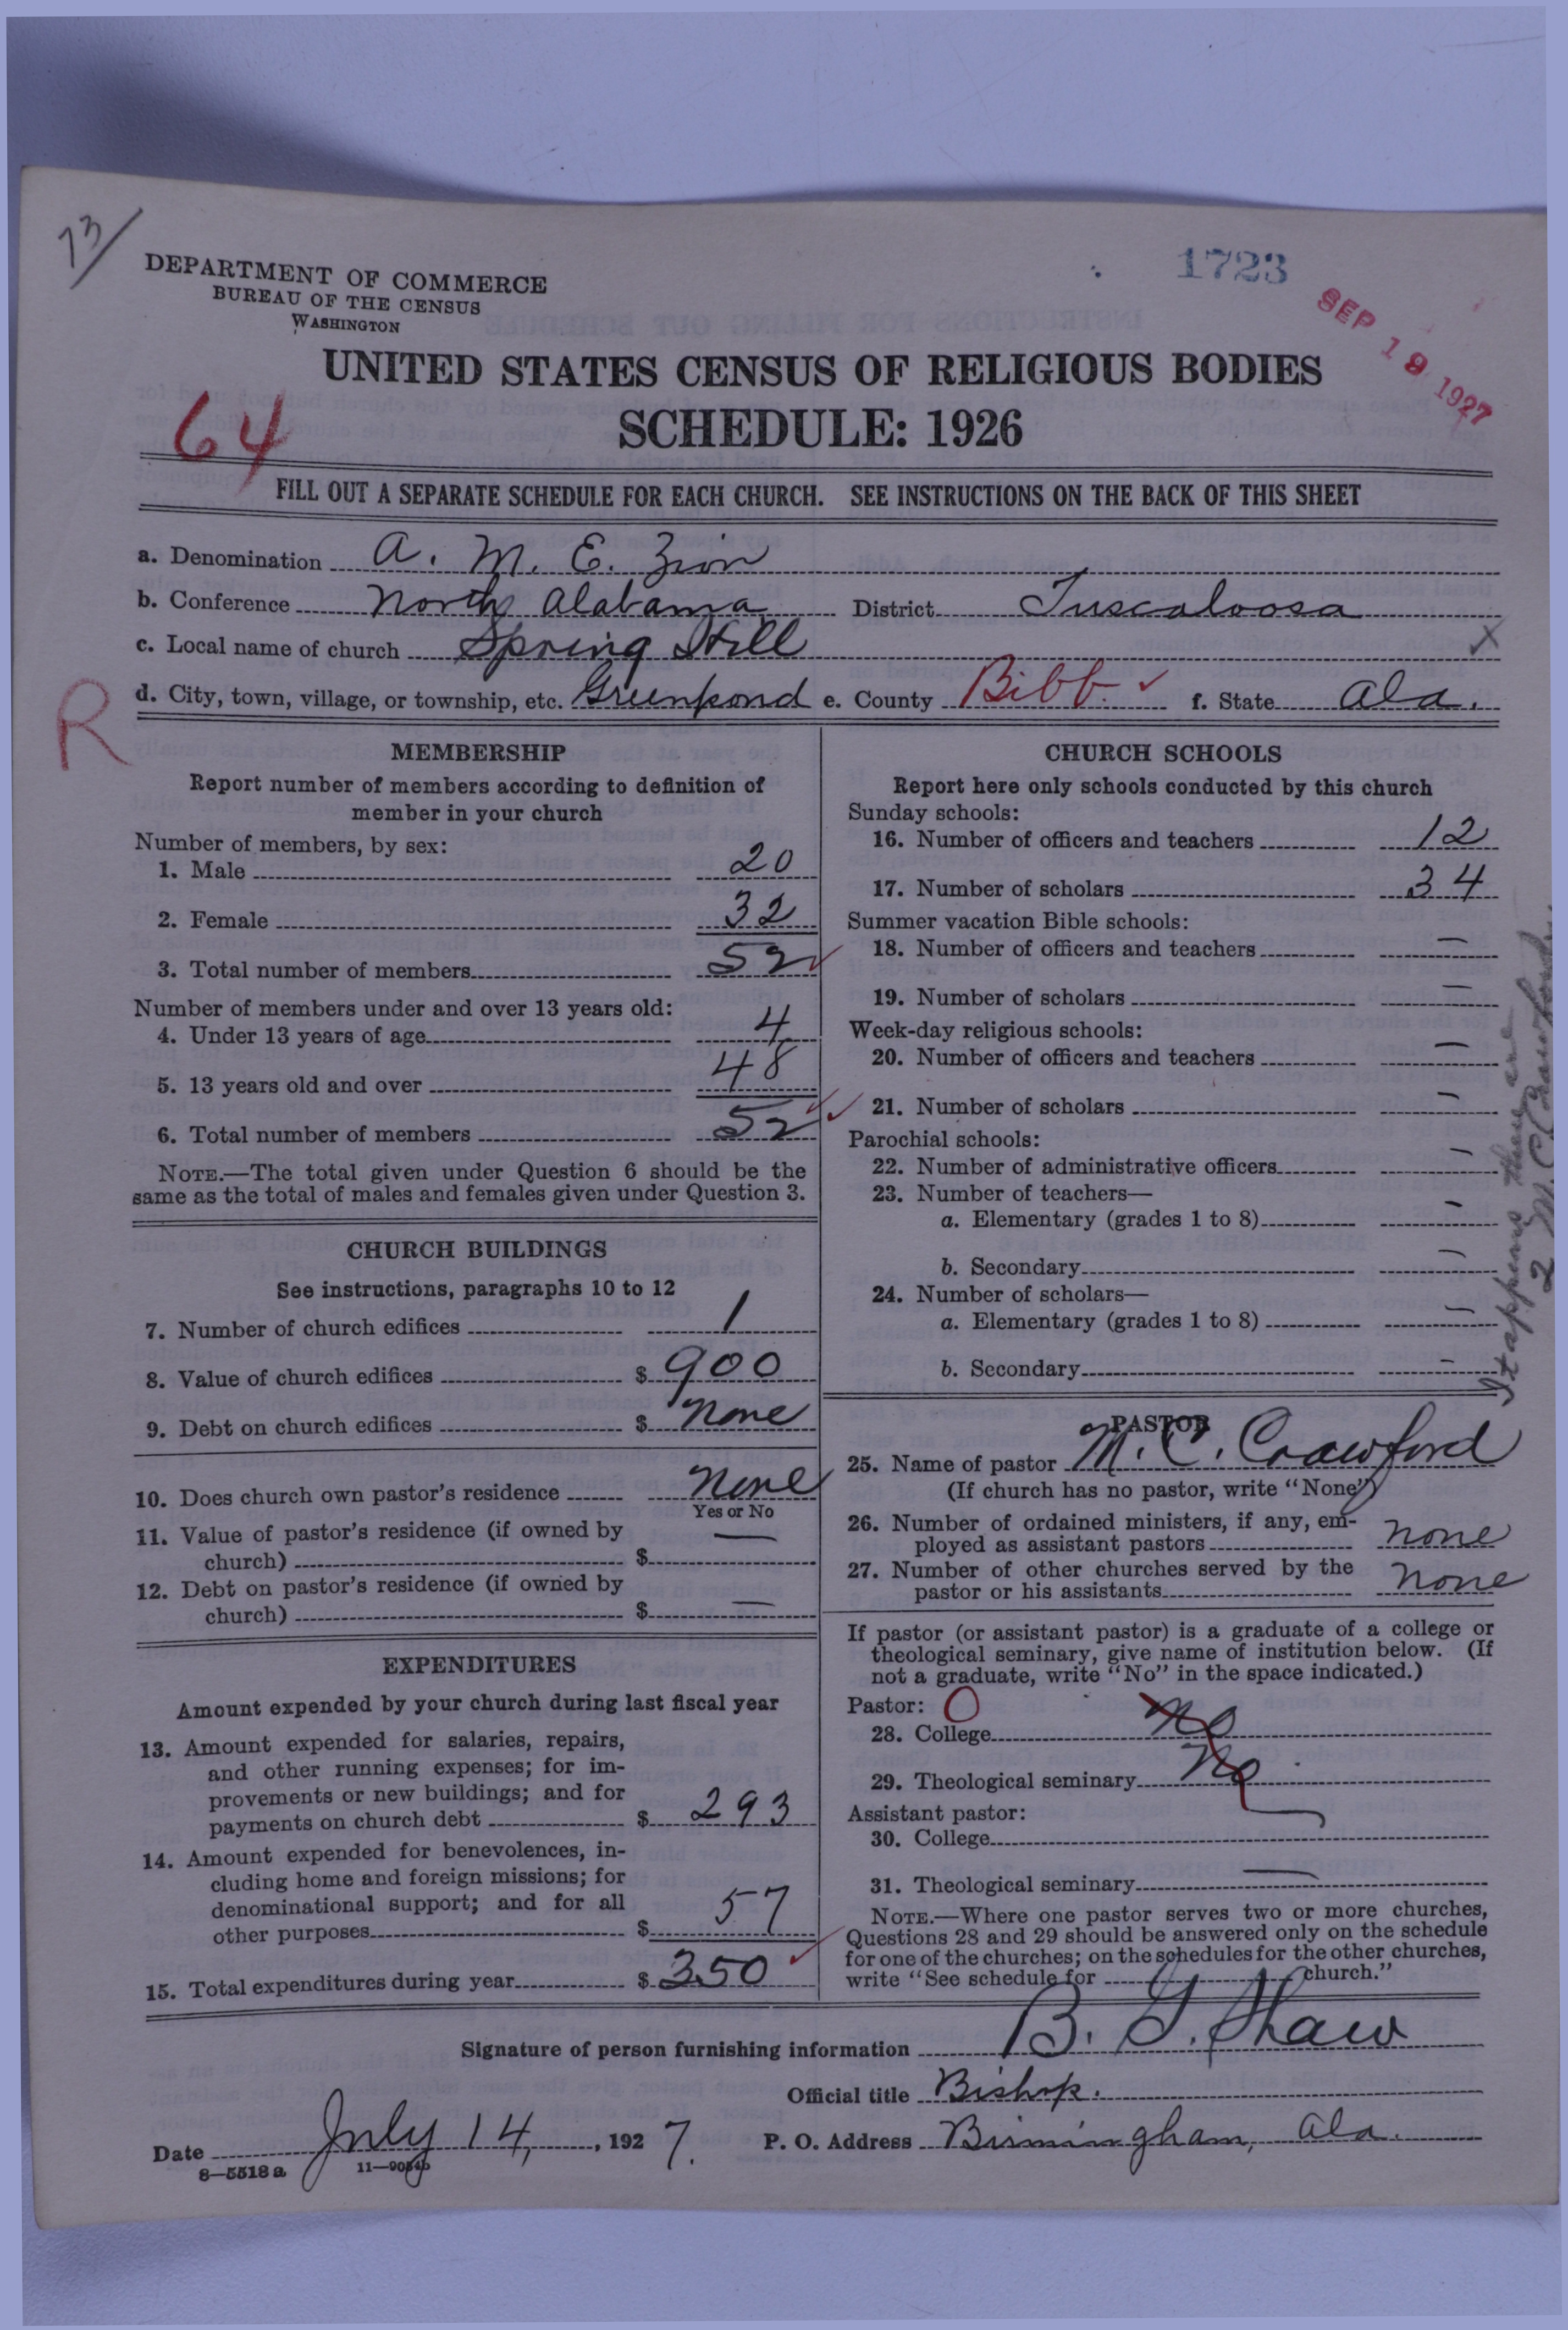 73/
DEPARTMENT OF COMMERCE
BUREAU OF THE CENSUS
WASHINGTON
1723
SEP 19 1927
UNITED STATES CENSUS OF RELIGIOUS BODIES
SCHEDULE: 1926
64
FILL OUT A SEPARATE SCHEDULE FOR EACH CHURCH. SEE INSTRUCTIONS ON THE BACK OF THIS SHEET
a. Denomination A. M. E. Zion
b. Conference North Alabama District Tuscaloosa
c. Local name of church Spring Hill X
d. City, town, village, or township, etc. Greenpond e. County Bibb ✓ f. State Ala.
R
MEMBERSHIP
Report number of members according to definition of
member in your church
Number of members, by sex:
1. Male 20
2. Female 32
3. Total number of members 52 ✓
Number of members under and over 13 years old:
4. Under 13 years of age 4
5. 13 years old and over 48
6. Total number of members 52 ✓ ✓
NOTE.—The total given under Question 6 should be the
same as the total of males and females given under Question 3.
CHURCH BUILDINGS
See instructions, paragraphs 10 to 12
7. Number of church edifices 1
8. Value of church edifices $ 900
9. Debt on church edifices $ None
10. Does church own pastor's residence None
Yes or No
11. Value of pastor's residence (if owned by
church) $ —
12. Debt on pastor's residence (if owned by
church) $ —
EXPENDITURES
Amount expended by your church during last fiscal year
13. Amount expended for salaries, repairs,
and other running expenses; for im-
provements or new buildings; and for
payments on church debt $ 293
14. Amount expended for benevolences, in-
cluding home and foreign missions; for
denominational support; and for all
other purposes $ 57
15. Total expenditures during year $ 350 ✓
CHURCH SCHOOLS
Report here only schools conducted by this church
Sunday schools:
16. Number of officers and teachers 12
17. Number of scholars 34
Summer vacation Bible schools:
18. Number of officers and teachers —
19. Number of scholars —
Week-day religious schools:
20. Number of officers and teachers —
21. Number of scholars —
Parochial schools:
22. Number of administrative officers —
23. Number of teachers—
a. Elementary (grades 1 to 8) —
b. Secondary —
24. Number of scholars—
a. Elementary (grades 1 to 8) —
b. Secondary —
It appears there are
2 M. C. Crawfords
PASTOR
25. Name of pastor M. C. Crawford
(If church has no pastor, write "None")
26. Number of ordained ministers, if any, em-
ployed as assistant pastors None
27. Number of other churches served by the
pastor or his assistants None
If pastor (or assistant pastor) is a graduate of a college or
theological seminary, give name of institution below. (If
not a graduate, write "No" in the space indicated.)
Pastor: O
28. College No
29. Theological seminary No
Assistant pastor:
30. College
31. Theological seminary —
NOTE.—Where one pastor serves two or more churches,
Questions 28 and 29 should be answered only on the schedule
for one of the churches; on the schedules for the other churches,
write "See schedule for church."
Signature of person furnishing information B. G. Shaw
Official title Bishop.
Date July 14, 1927. P. O. Address Birmingham, Ala.
8—5518 a